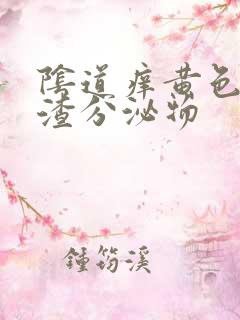 陰道痒黄色
渣分泌物
鍾筠溪